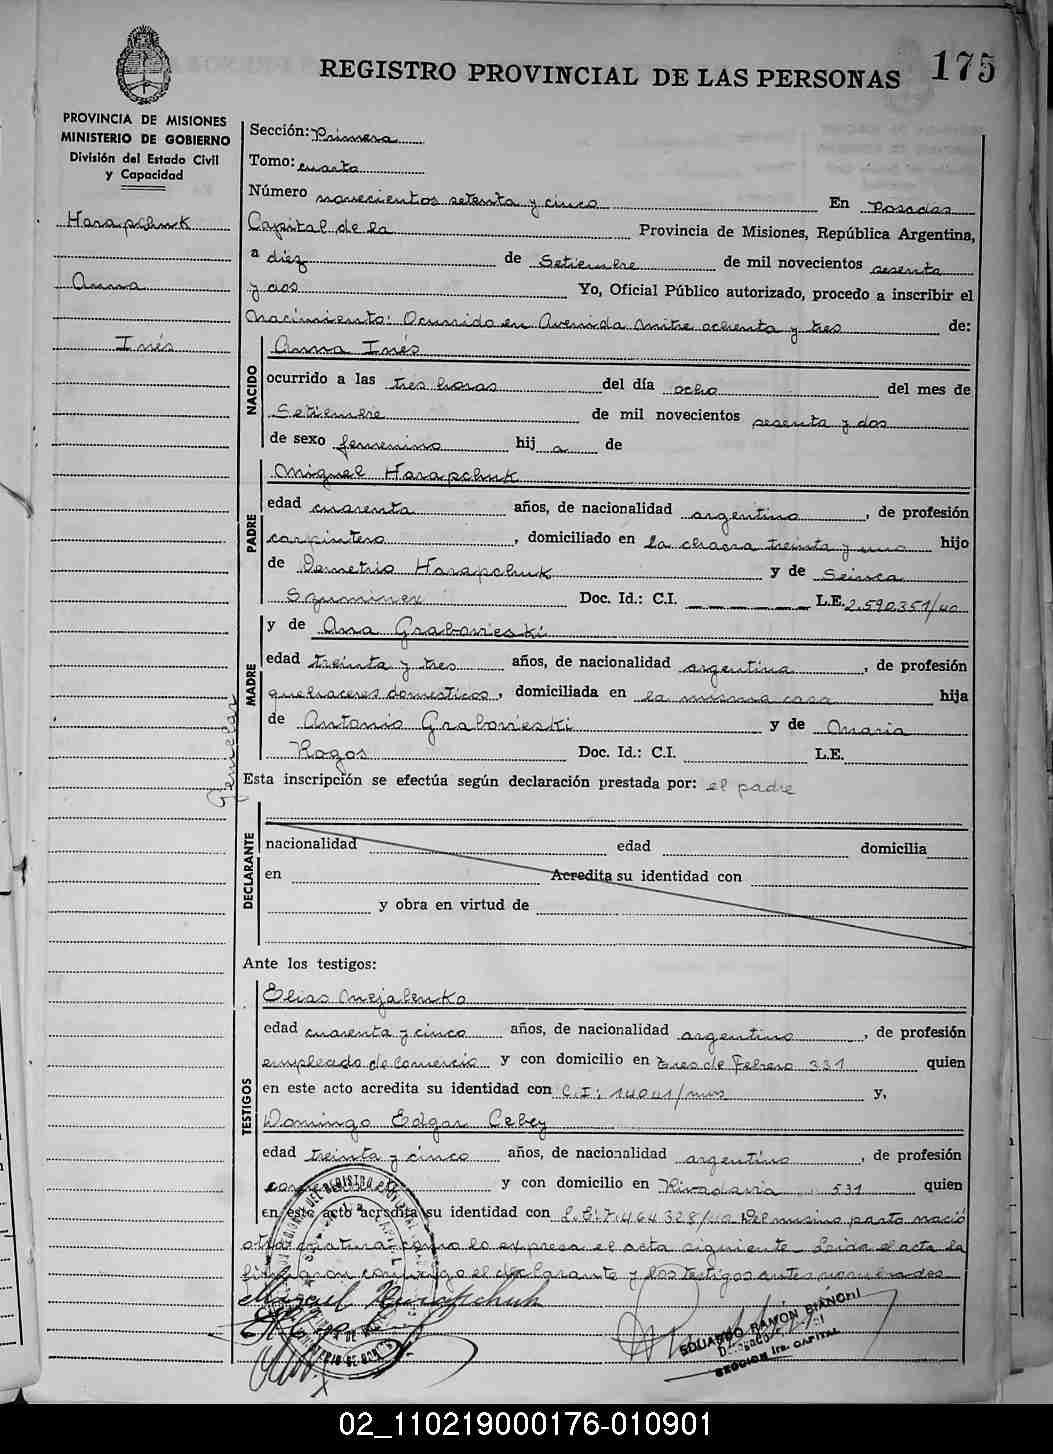 REGISTRO PROVINCIAL DE LAS PERSONAS 175
PROVINCIA DE MISIONES
MINISTERIO DE GOBIERNO
División del Estado Civil
y Capacidad
Harapchuk
Anna
Inés
Gemelar
Sección: Primera
Tomo: cuarto
Número novecientos setenta y cinco En Posadas
Capital de la Provincia de Misiones, República Argentina,
a diez de Setiembre de mil novecientos sesenta
y dos Yo, Oficial Público autorizado, procedo a inscribir el
Nacimiento: Ocurrido en Avenida Mitre ochenta y tres de:
NACIDO
Anna Inés
ocurrido a las tres horas del día ocho del mes de
Setiembre de mil novecientos sesenta y dos
de sexo femenino hij a de
PADRE
Miguel Harapchuk
edad cuarenta años, de nacionalidad argentino, de profesión
carpintero, domiciliado en la chacra treinta y uno hijo
de Demetrio Harapchuk y de Seinca
Szuminex Doc. Id.: C.I. L.E. 2.590.351/40
MADRE
y de Ana Grabovieski
edad treinta y tres años, de nacionalidad argentina, de profesión
quehaceres domesticos, domiciliada en la misma casa hija
de Antonio Grabovieski y de Maria
Rogos Doc. Id.: C.I. L.E.
Esta inscripción se efectúa según declaración prestada por: el padre
DECLARANTE
nacionalidad edad domicilia
en Acredita su identidad con
y obra en virtud de
Ante los testigos:
TESTIGOS
Elias Mejalenko
edad cuarenta y cinco años, de nacionalidad argentino, de profesión
empleado de Comercio y con domicilio en Tres de Febrero 331 quien
en este acto acredita su identidad con C.I: 14041/mns y,
Domingo Edgar Cebey
edad treinta y cinco años, de nacionalidad argentino, de profesión
y con domicilio en Rivadavia 531 quien
en este acto acredita su identidad con L.E:7.464.328/40 Del mismo parto nació
otra criatura como lo expresa el acta siguiente. Leida el acta la
firmaron conmigo el declarante y los testigos antes nombrados
Miguel Harapchuk
EDUARDO RAMÓN BIANCHI
SECCION 1ra. CAPITAL
02_110219000176-010901